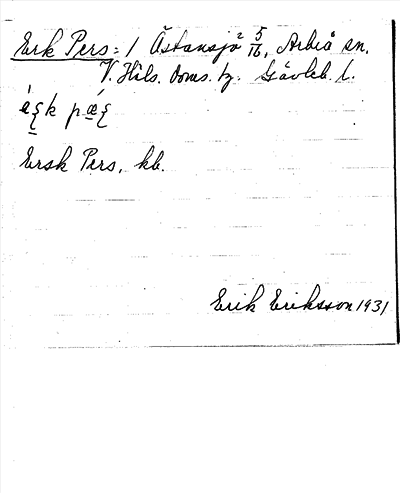 Erk Pers: 1 Åstansjö² 5/16, Arbrå sn.
V. Häls. doms. hg. Gävleb. l.
Ersk Pers, kb.
Erik Eriksson 1931